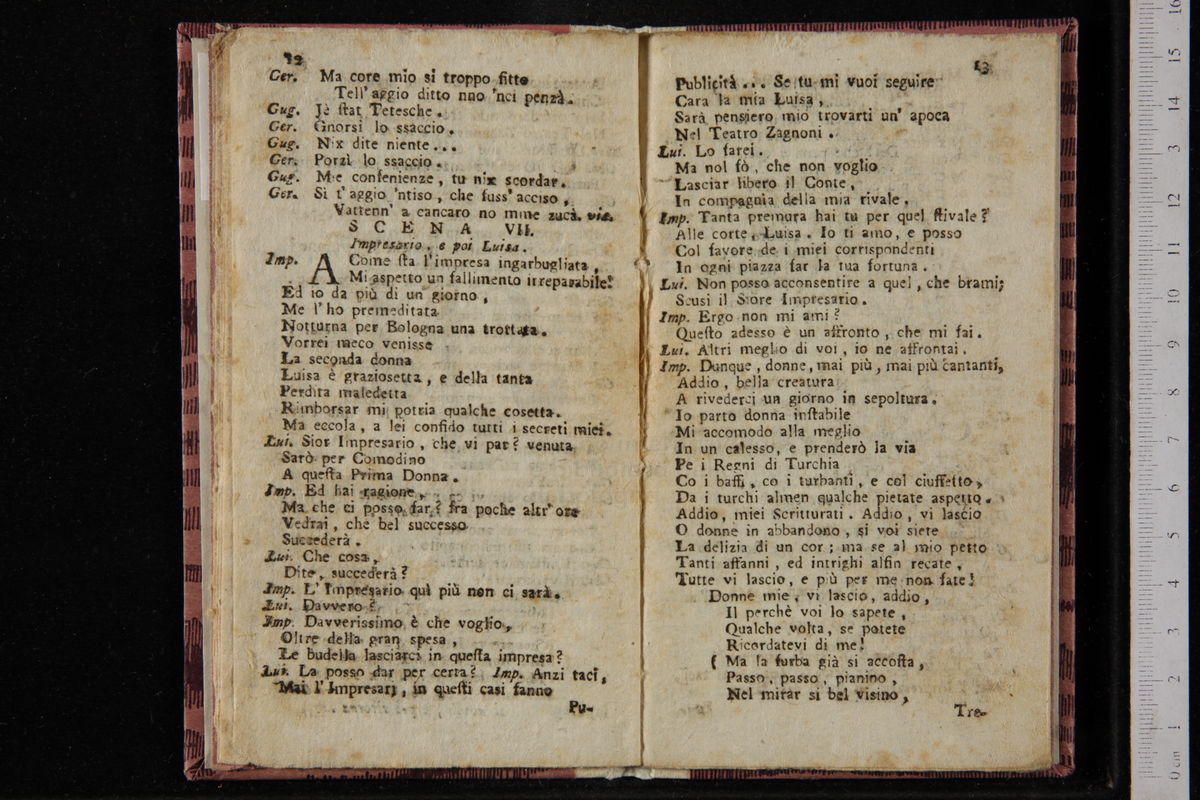 12
Ger. Ma core mio si troppo fitto
Tell' aggio ditto nno 'nci penzà.
Gug. Jè ſtat Teteſche.
Ger. Gnorsi lo ssaccio.
Gug. Nix dite niente...
Ger. Porzì lo ssaccio.
Gug. Mie confenienze, tu nix scordar.
Ger. Sì t' aggio 'ntiso, che fuss' acciso,
Vattenn' a cancaro no mme zucà. via.
SCENA VII.
Impresario, e poi Luisa.
Imp. A Come ſta l'impresa ingarbugliata,
Mi aspetto un fallimento irreparabile!
Ed io da più di un giorno,
Me l' ho premeditata
Notturna per Bologna una trottata.
Vorrei meco venisse
La seconda donna
Luisa è graziosetta, e della tanta
Perdita maledetta
Rimborsar mi potria qualche cosetta.
Ma eccola, a lei confido tutti i secreti miei.
Lui. Sior Impresario, che vi par? venuta
Sarò per Comodino
A queſta Prima Donna.
Imp. Ed hai ragione,
Ma che ci posso far? fra poche altr' ore
Vedrai, che bel successo
Succederà.
Lui. Che cosa,
Dite, succederà?
Imp. L' Impresario quì più non ci sarà.
Lui. Davvero?
Imp. Davverissimo è che voglio,
Oltre della gran spesa,
Le budella lasciarci in queſta impresa?
Lui. La posso dar per certa? Imp. Anzi taci,
Mai l' Impresarj, in queſti casi fanno
Pu-
13
Publicità... Se tu mi vuoi seguire
Cara la mia Luisa,
Sarà pensiero mio trovarti un' apoca
Nel Teatro Zagnoni.
Lui. Lo farei.
Ma nol fò, che non voglio
Lasciar libero il Conte,
In compagnia della mia rivale.
Imp. Tanta premura hai tu per quel ſtivale?
Alle corte, Luisa. Io ti amo, e posso
Col favore de i miei corrispondenti
In ogni piazza far la tua fortuna.
Lui. Non posso acconsentire a quel, che brami;
Scusi il Siore Impresario.
Imp. Ergo non mi ami?
Queſto adesso è un affronto, che mi fai.
Lui. Altri meglio di voi, io ne affrontai.
Imp. Dunque, donne, mai più, mai più cantanti,
Addio, bella creatura
A rivederci un giorno in sepoltura.
Io parto donna inſtabile
Mi accomodo alla meglio
In un calesso, e prenderò la via
Pe i Regni di Turchia
Co i baffi, co i turbanti, e col ciuffetto,
Da i turchi almen qualche pietate aspetto.
Addio, miei Scritturati. Addio, vi lascio
O donne in abbandono, si voi siete
La delizia di un cor; ma se al mio petto
Tanti affanni, ed intrighi alfin recate,
Tutte vi lascio, e più per me non fate!
Donne mie, vi lascio, addio,
Il perchè voi lo sapete,
Qualche volta, se potete
Ricordatevi di me!
( Ma la furba già si accoſta,
Passo, passo, pianino,
Nel mirar si bel visino,
Tre-
0 cm 1 2 3 4 5 6 7 8 9 10 11 12 13 14 15 16